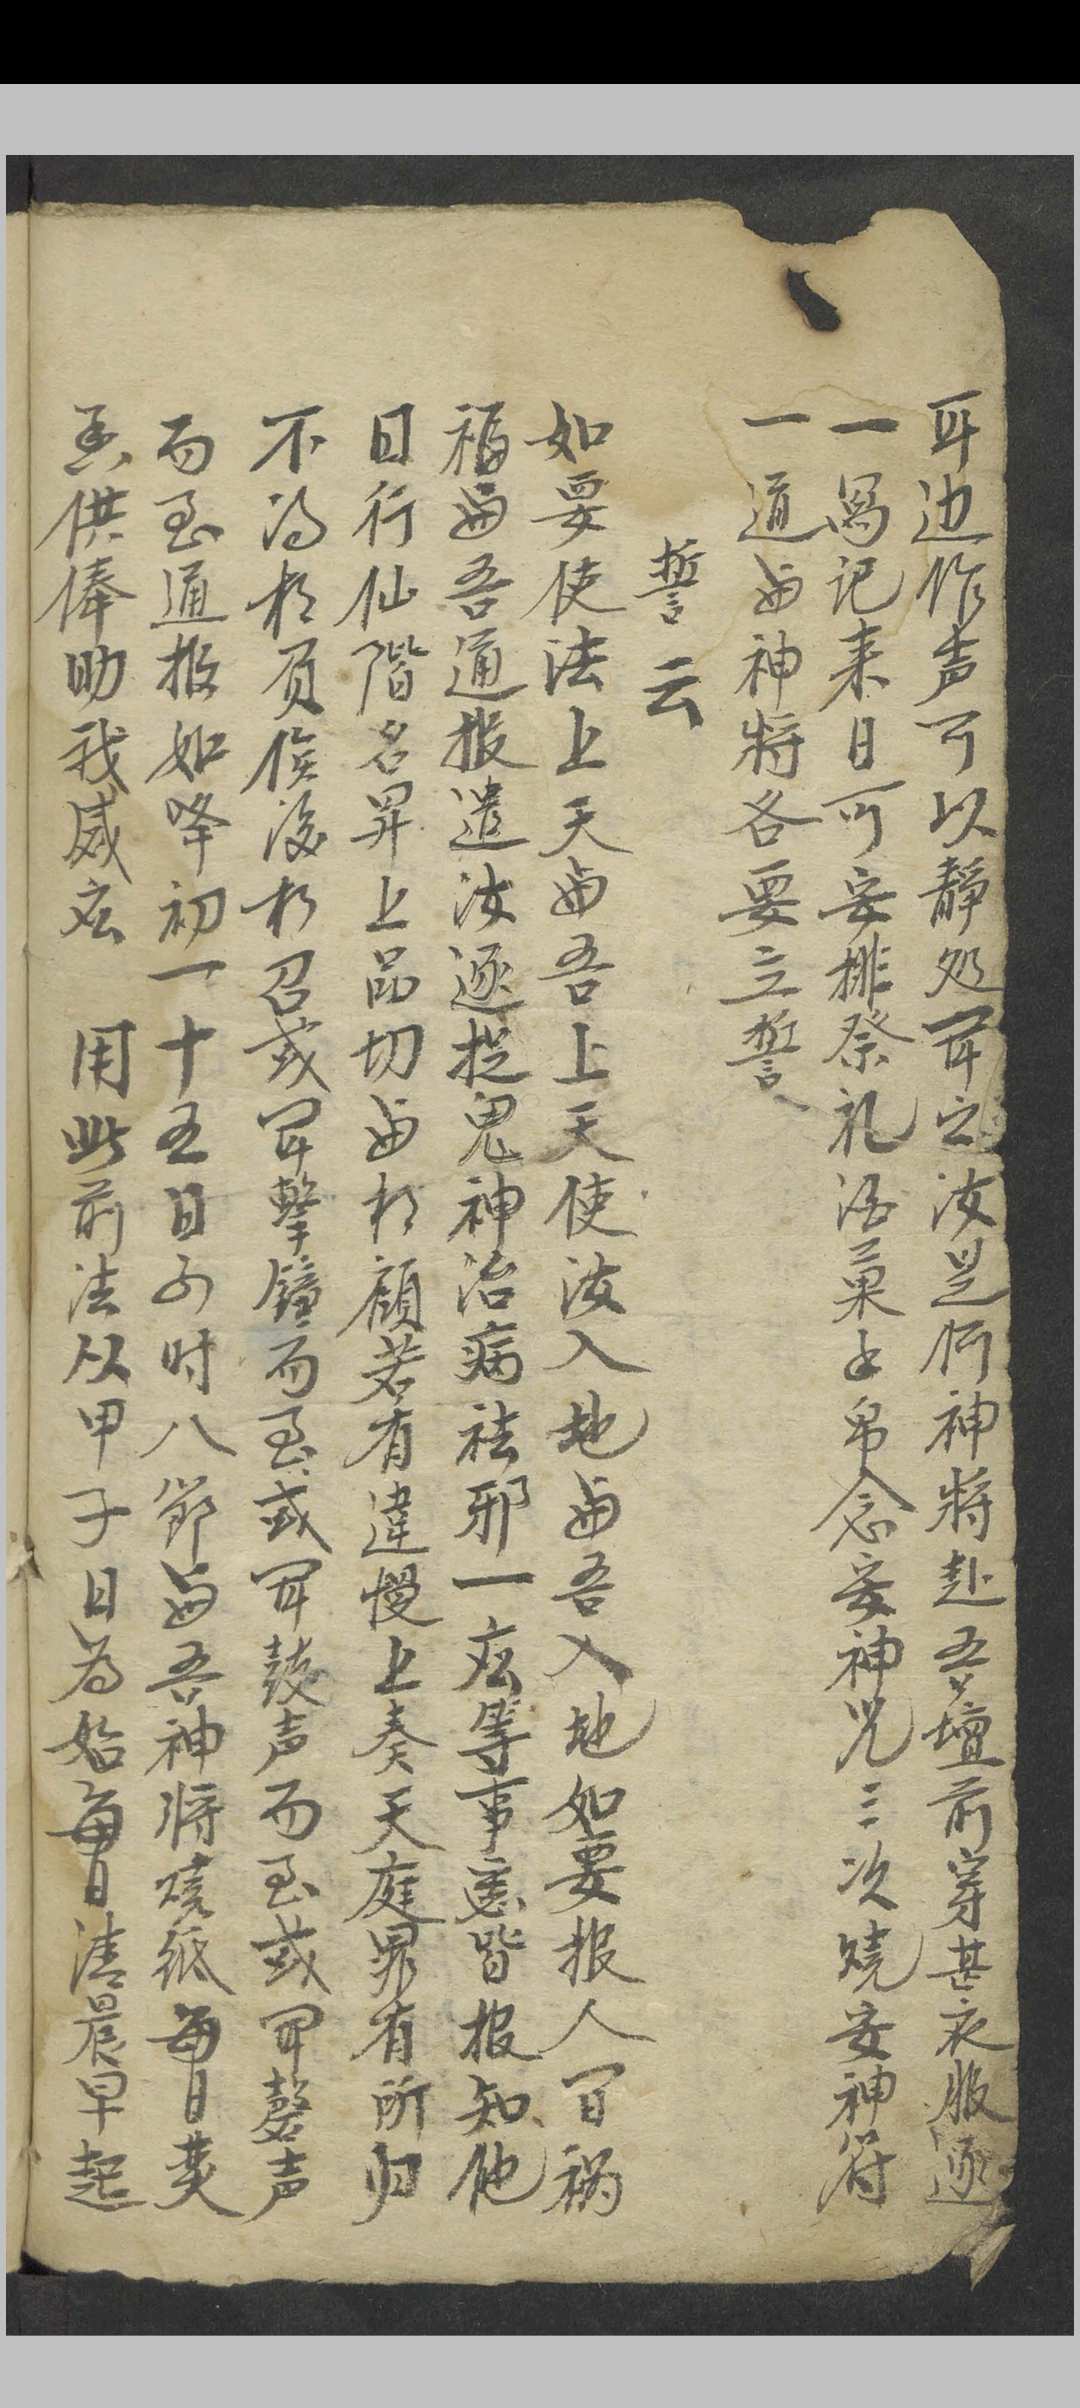 耳边作声可以静処问之汝是何神将赴吾壇前穿甚衣服逐
一写记来日可安排祭礼酒菓才帛念安神咒三次烧安神符
一道与神将各要立誓
誓云
如要使法上天与吾上天使汝入地与吾入地如要报人间祸
福与吾通报遣汝逐捉鬼神治病祛邪一应等事悉皆报知他
日行仙階名昇上品切与相顧若有違慢上奏天庭罪有所归
不得相負候後相召或闻擊鐘而至或闻鼓声而至或闻磬声
而至通报如降初一十五日子时八節与吾神将烧纸每日焚
香供俸助我威灵　用此前法从甲子日为始每日清晨早起